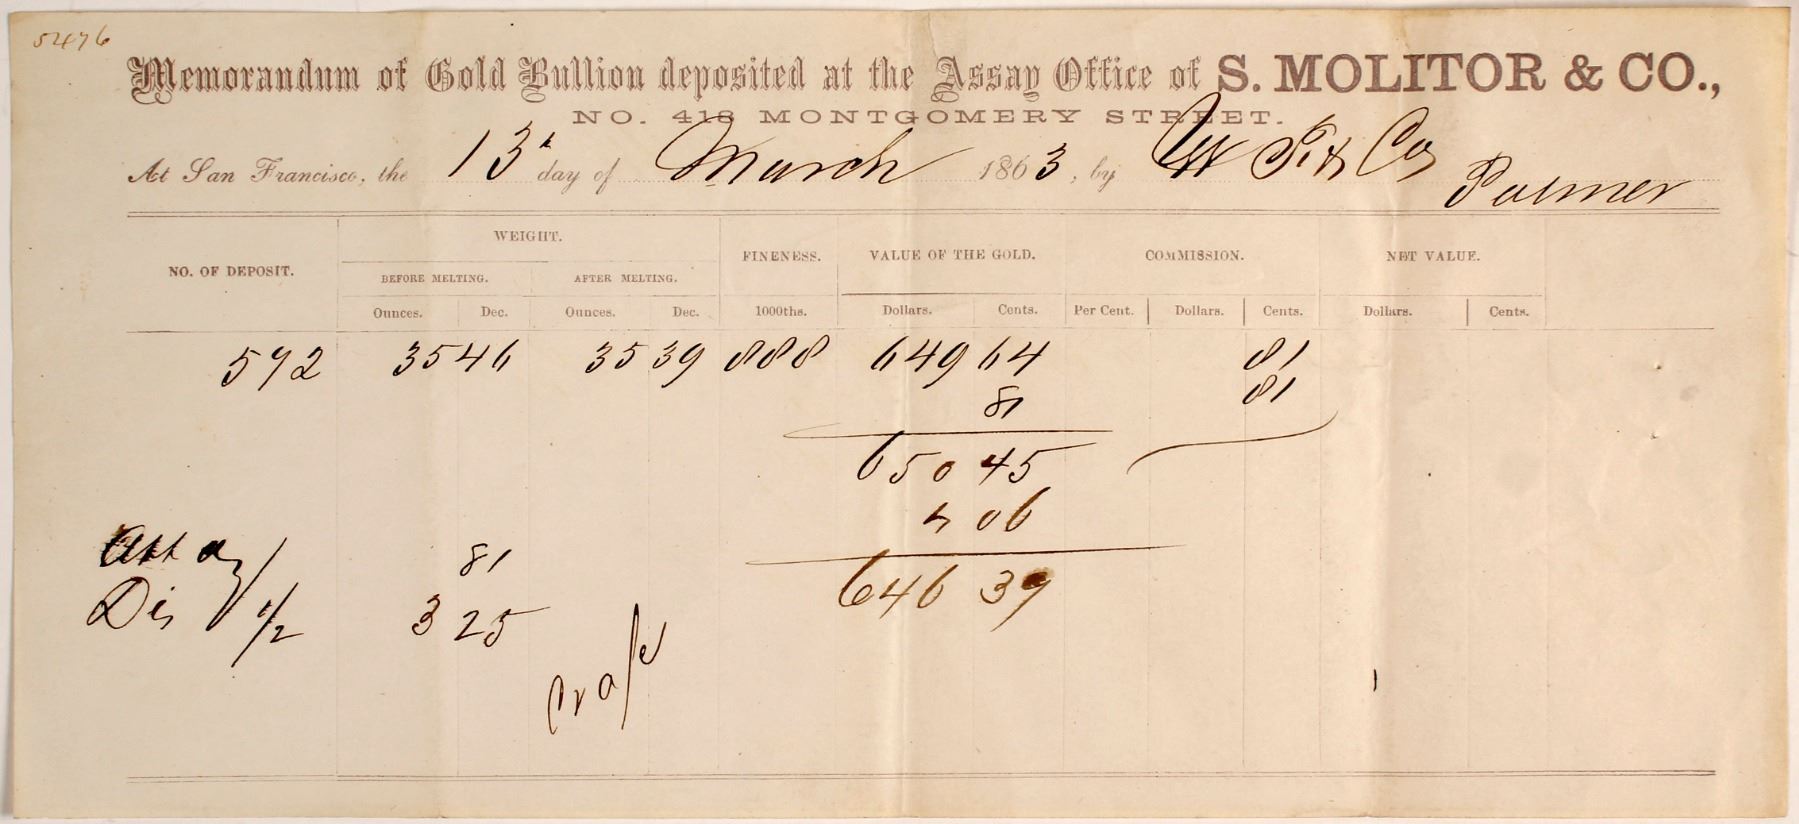 5476
Memorandum of Gold Bullion deposited at the Assay Office of S. MOLITOR & CO.,
NO. 418 MONTGOMERY STREET.
At San Francisco, the 13th day of March 1863, by W F & Co
Palmer
WEIGHT.
NO. OF DEPOSIT. FINENESS. VALUE OF THE GOLD. COMMISSION. NET VALUE.
BEFORE MELTING. AFTER MELTING.
Ounces. Dec. Ounces. Dec. 1000ths. Dollars. Cents. Per Cent. Dollars. Cents. Dollars. Cents.
592 35 46 35 39 888 649 64 81
81 81
650 45
4 06
Assay 81 646 39
Dis 1/2 3 25